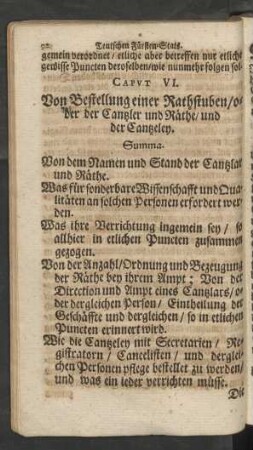 92 Teutschen Fürsten-Stats
gemein verordnet / etliche aber betreffen nur etliche
gewisse Puncten deroselben / wie nunmehr folgen sol-
CAPVT VI.
Von Bestellung einer Rathstuben / o-
der der Cantzler und Räthe / und
der Cantzeley.
Summa.
Von dem Namen und Stand der Cantzlar
und Räthe.
Was für sonderbare Wissenschafft und Qua-
litäten an solchen Personen erfordert wer-
den.
Was ihre Verrichtung ingemein sey / so
allhier in etlichen Puncten zusammen
gezogen.
Von der Anzahl / Ordnung und Bezeugung
der Räthe bey ihrem Ampt: Von der
Direction und Ampt eines Cantzlars / o-
der dergleichen Person / Eintheilung der
Geschäffte und dergleichen / so in etlichen
Puncten erinnert wird.
Wie die Cantzeley mit Secretarien / Re-
gistratorn / Cancelisten / und derglei-
chen Personen pflege bestellet zu werden /
und was ein ieder verrichten müsse.
Die